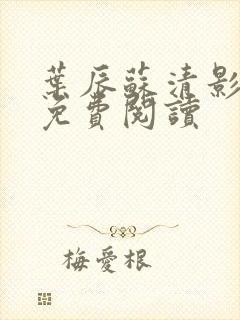 葉辰蘇清影
免費閱讀
梅愛根